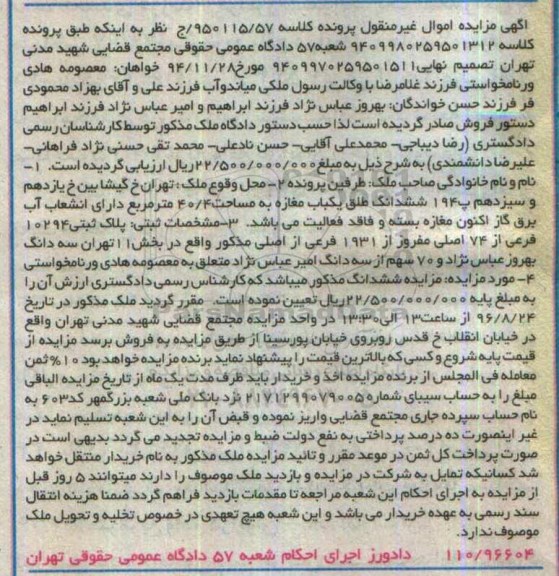 آگهی مزایده اموال غیرمنقول پرونده کلاسه ۹۵۰۱۱۵/۵۷/ج نظر به اینکه طبق پرونده
کلاسه ۹۴۰۹۹۸۰۲۵۹۵۰۱۳۱۲ شعبه۵۷ دادگاه عمومی حقوقی مجتمع قضایی شهید مدنی
تهران تصمیم نهایی۹۴۰۹۹۷۰۲۵۹۵۰۱۵۱۱ مورخ۹۴/۱۱/۲۸ خواهان: معصومه هادی
ورنامخواستی فرزند غلامرضا با وکالت رسول ملکی میاندوآب فرزند علی و آقای بهزاد محمودی
فر فرزند حسن خواندگان: بهروز عباس نژاد فرزند ابراهیم و امیر عباس نژاد فرزند ابراهیم
دستور فروش صادر گردیده است لذا حسب دستور دادگاه ملک مذکور توسط کارشناسان رسمی
دادگستری (رضا دیباجی- محمدعلی آقایی- حسن نادعلی- محمد تقی حسنی نژاد فراهانی-
علیرضا دانشمندی) به شرح ذیل به مبلغ ۲۲/۵۰۰/۰۰۰/۰۰۰ریال ارزیابی گردیده است. ۱-
نام و نام خانوادگی صاحب ملک: طرفین پرونده ۲- محل وقوع ملک: تهران خ گیشا بین خ یازدهم
و سیزدهم پ۱۹۴ ششدانگ طلق یکباب مغازه به مساحت۴۰/۴ مترمربع دارای انشعاب آب
برق گاز اکنون مغازه بسته و فاقد فعالیت می باشد. ۳-مشخصات ثبتی: پلاک ثبتی۱۰۲۹۴
فرعی از ۷۴ اصلی مفروز از ۱۹۳۱ فرعی از اصلی مذکور واقع در بخش۱۱ تهران سه دانگ
بهروز عباس نژاد و ۷۰ سهم از سه دانگ امیر عباس نژاد متعلق به معصومه هادی ورنامخواستی
۴- مورد مزایده: مزایده ششدانگ مذکور میباشد که کارشناس رسمی دادگستری ارزش آن را
به مبلغ پایه ۲۲/۵۰۰/۰۰۰/۰۰۰ریال تعیین نموده است. مقرر گردید ملک مذکور در تاریخ
۹۶/۸/۲۴ از ساعت۱۳ الی۱۳:۳۰ در واحد مزایده مجتمع قضایی شهید مدنی تهران واقع
در خیابان انقلاب خ قدس روبروی خیابان پورسینا از طریق مزایده به فروش برسد مزایده از
قیمت پایه شروع و کسی که بالاترین قیمت را پیشنهاد نماید برنده مزایده خواهد بود ۱۰%ثمن
معامله فی المجلس از برنده مزایده اخذ و خریدار باید ظرف مدت یک ماه از تاریخ مزایده الباقی
مبلغ را به حساب سیبای شماره ۲۱۷۱۲۹۹۰۷۹۰۰۵ نزد بانک ملی شعبه بزرگمهر کد۶۰۳ به
نام حساب سپرده جاری مجتمع قضایی واریز نموده و قبض آن را به این شعبه تسلیم نماید در
غیر اینصورت ده درصد پرداختی به نفع دولت ضبط و مزایده تجدید می گردد بدیهی است در
صورت پرداخت کل ثمن در موعد مقرر و تائید مزایده ملک مذکور به نام خریدار منتقل خواهد
شد کسانیکه تمایل به شرکت در مزایده و بازدید ملک موصوف را دارند میتوانند ۵ روز قبل
از مزایده به اجرای احکام این شعبه مراجعه تا مقدمات بازدید فراهم گردد ضمنا هزینه انتقال
سند رسمی به عهده خریدار می باشد و این شعبه هیچ تعهدی در خصوص تخلیه و تحویل ملک
موصوف ندارد.
۱۱۰/۹۶۶۰۴ دادورز اجرای احکام شعبه ۵۷ دادگاه عمومی حقوقی تهران